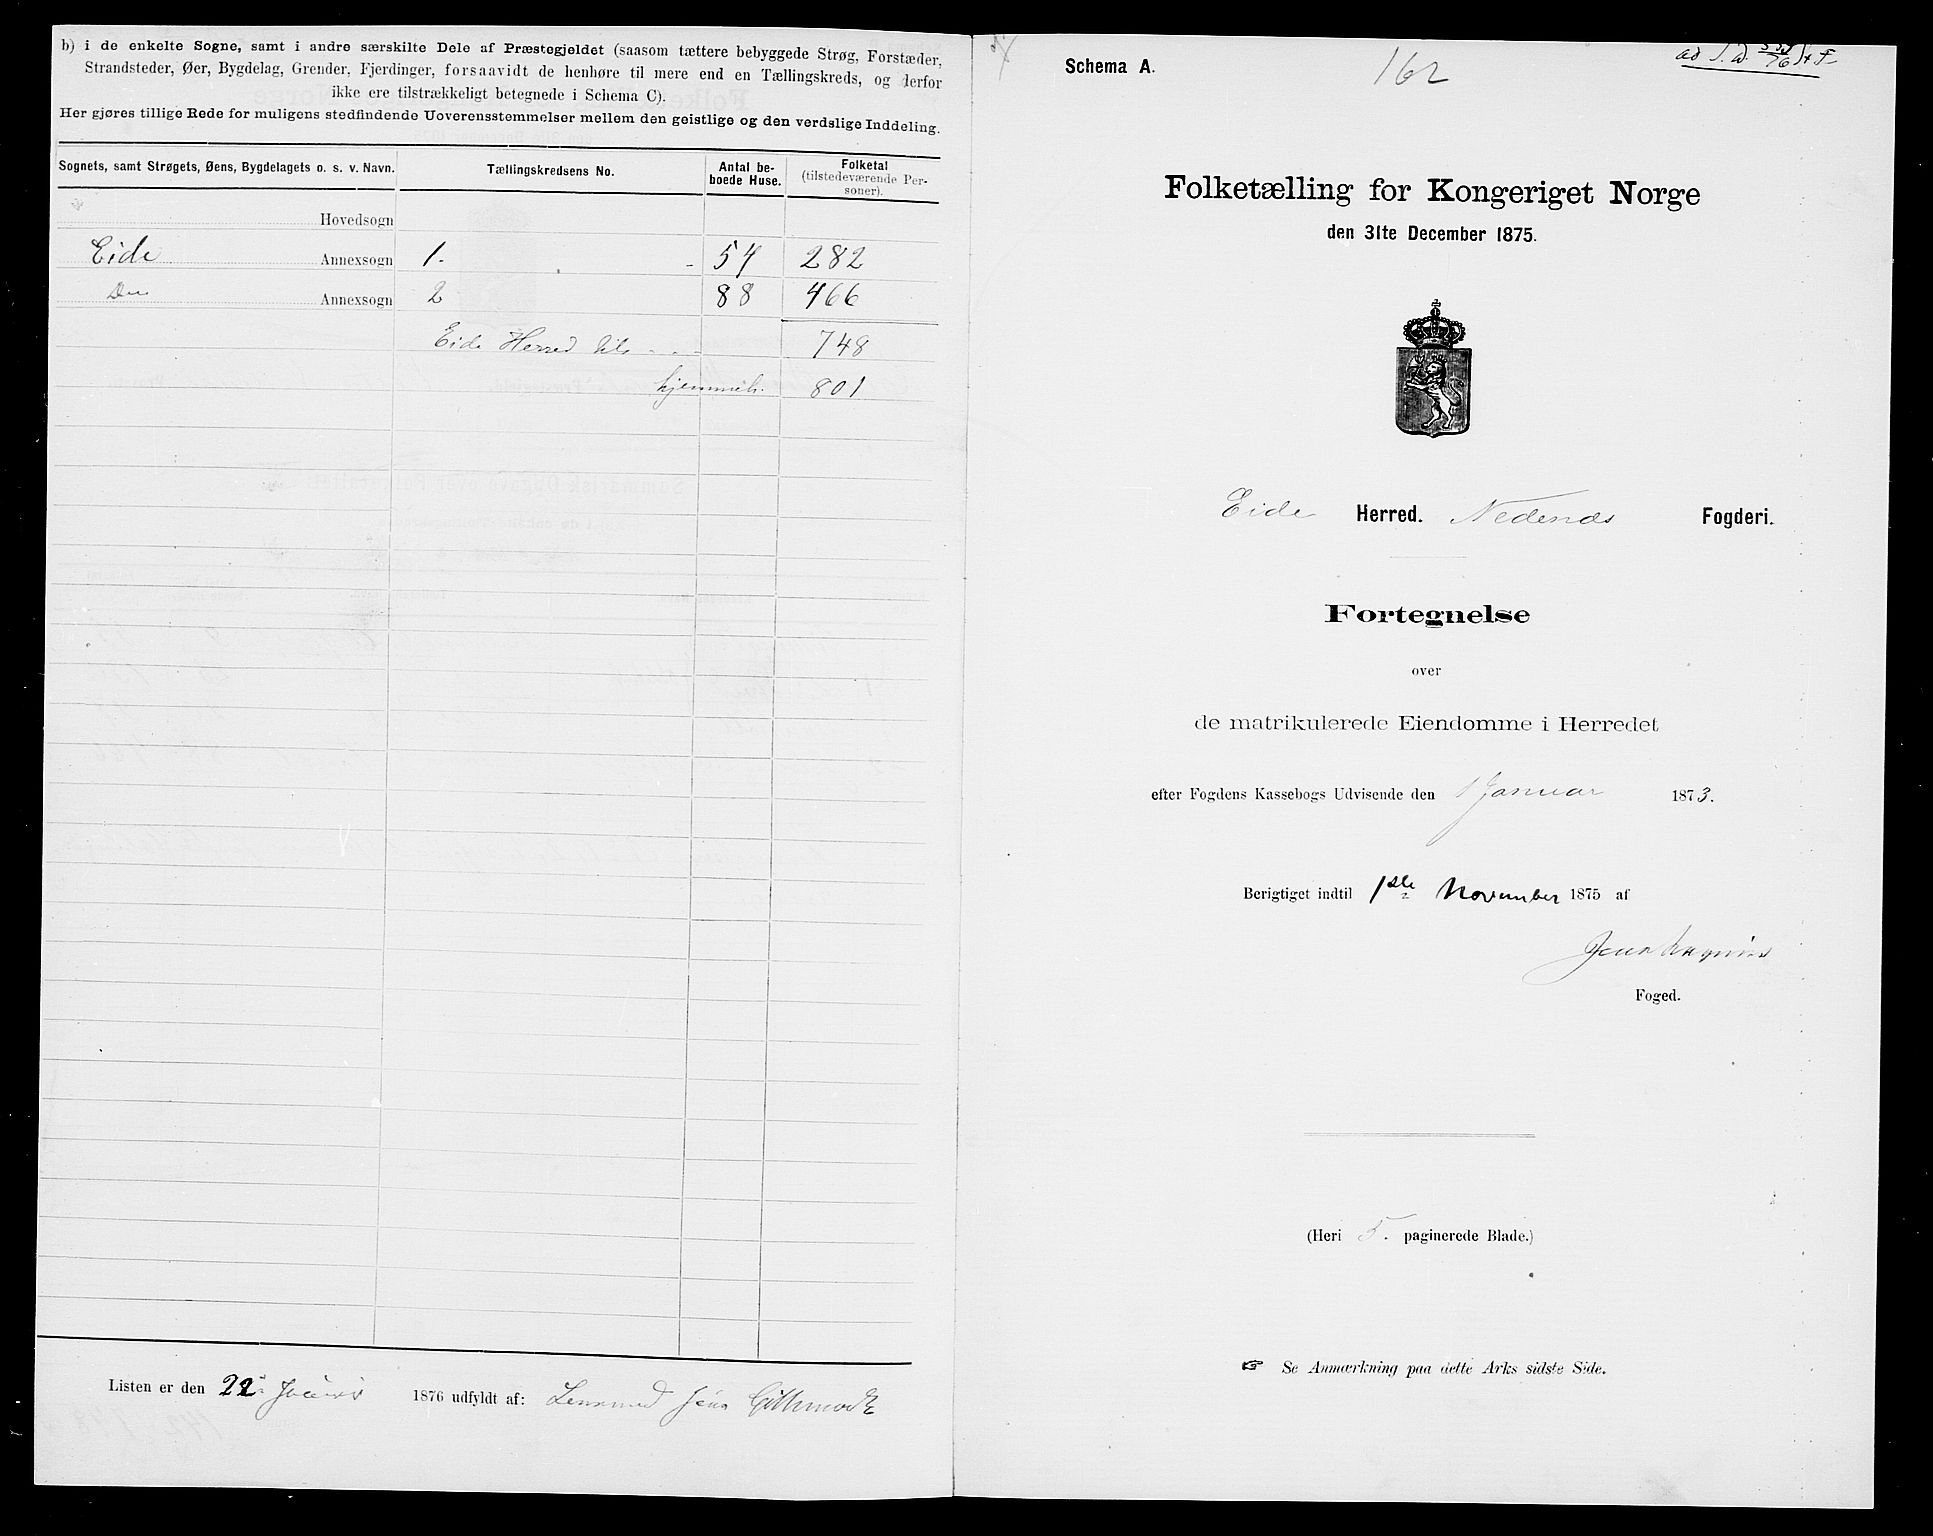 b) i de enkelte Sogne, samt i andre særskilte Dele af Præstegjeldet (saasom tættere bebyggede Strøg, Forstæder,
Strandsteder, Øer, Bygdelag, Grender, Fjerdinger, forsaavidt de henhøre til mere end en Tællingskreds, og derfor
ikke ere tilstrækkeligt betegnede i Schema C).
Her gjøres tillige Rede for muligens stedfindende Uoverensstemmelser mellem den geistlige og den verdslige Inddeling.
Sognets, samt Strøgets, Øens, Bygdelagets o. s. v. Navn. Tællingskredsens No. Antal be-
boede Huse. Folketal
(tilstedeværende Per-
soner).
Hovedsogn
Eide Annexsogn 1. 54 282
Do Annexsogn 2 88 466
Eide Herred tils. 748
hjemmeh. 801
Listen er den 22 Januar 1876 udfyldt af: Lensmand Jens
Schema A.
162
Folketælling for Kongeriget Norge
den 31te December 1875.
Eide Herred. Nedenes Fogderi.
Fortegnelse
over
de matrikulerede Eiendomme i Herredet
efter Fogdens Kassebogs Udvisende den 1 Januar 1873.
Berigtiget indtil 1ste November 1875 af
Foged.
(Heri 5. paginerede Blade.)
☞ Se Anmærkning paa dette Arks sidste Side.